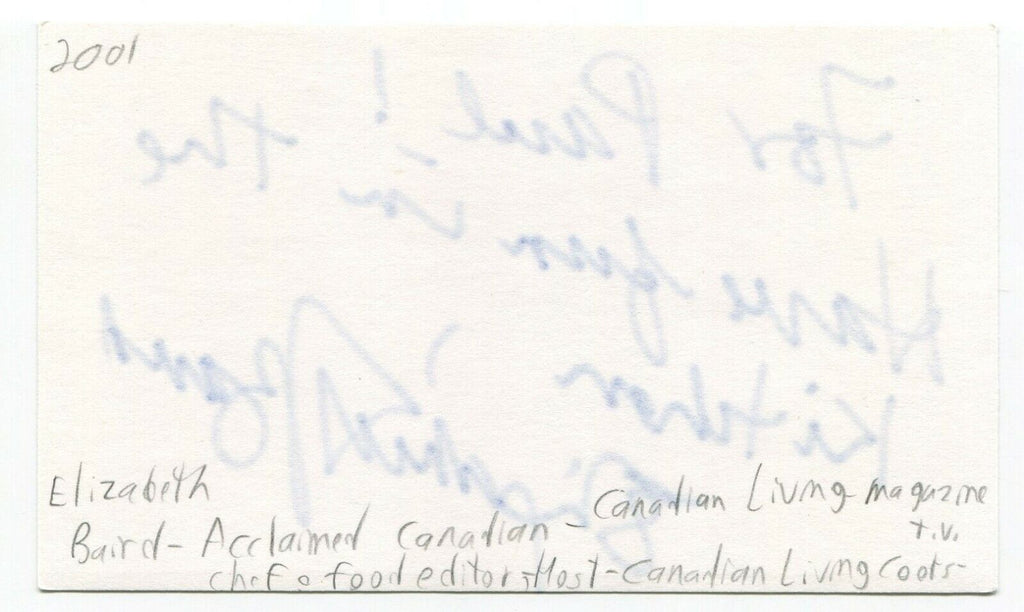 2001
For Paul!
Have fun in the
Kitchen
Elizabeth
Baird - Acclaimed Canadian - Canadian Living magazine
chef & food editor, Host - Canadian Living Cooks - T.V.